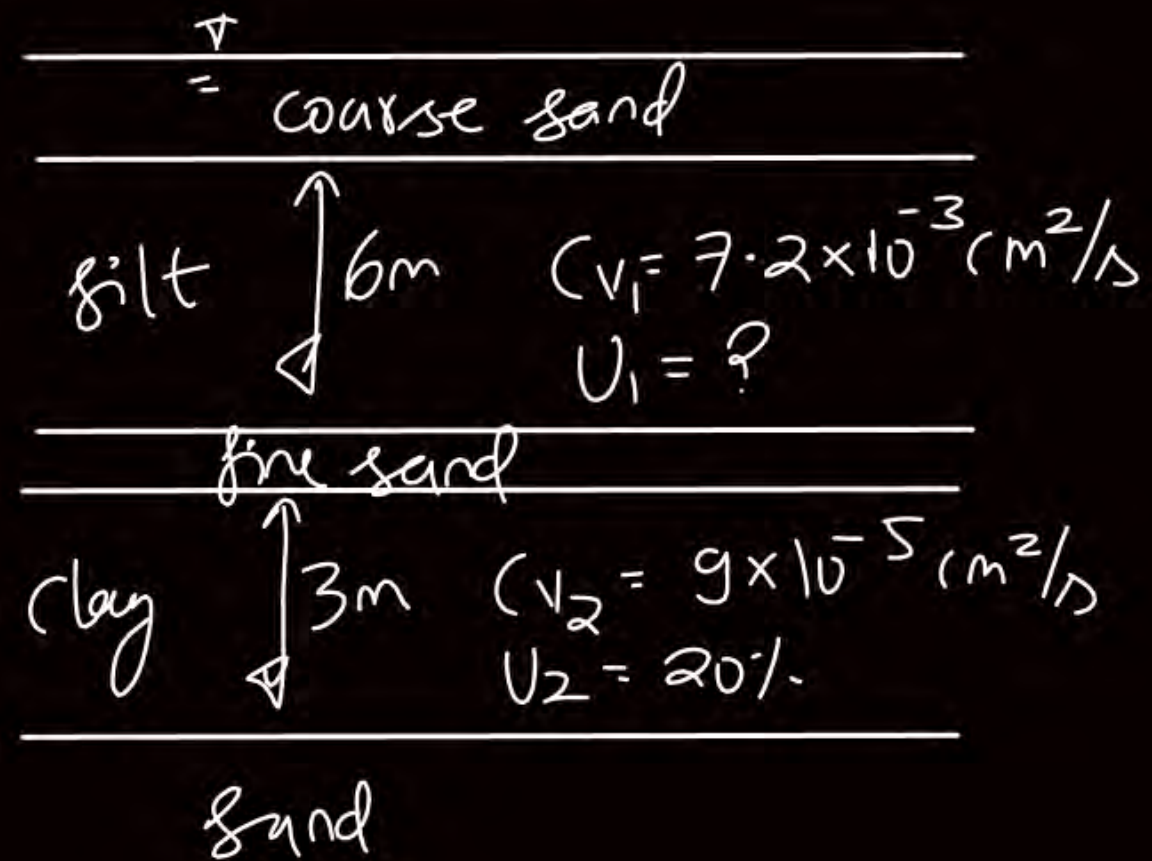 coarse sand
silt 6m Cv₁ = 7.2×10⁻³ cm²/s
U₁ = ?
fine sand
Clay 3m Cv₂ = 9×10⁻⁵ cm²/s
U₂ = 20%.
sand